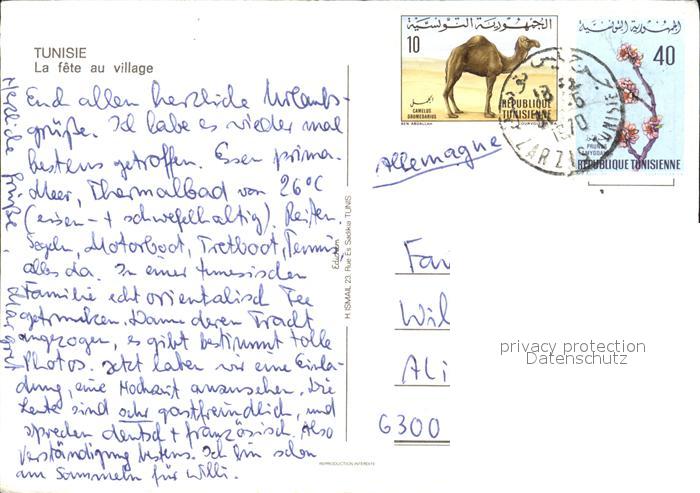 TUNISIE
La fête au village
Euch allen herzliche Urlaubs-
grüße. Ich habe es wieder mal
bestens getroffen. Essen prima.
Meer, Thermalbad von 26°C
(eisen- + schwefelhaltig). Reiten.
Segeln, Motorboot, Tretboot, Tennis
alles da. In einer tunesischen
Familie echt orientalisch Tee
getrunken. Dann deren Tracht
angezogen, es gibt bestimmt tolle
Photos. Jetzt haben wir eine Einla-
dung, eine Hochzeit anzusehen. Die
Leute sind sehr gastfreundlich, und
sprechen deutsch + französisch. Also
Verständigung bestens. Ich bin schon
am Sammeln für Willi.
Herzliche Grüße
Margret
Edition
H. ISMAIL 23, Rue Es Sadikia TUNIS
REPRODUCTION INTERDITE
الجمهورية التونسية
10
الجمل
CAMELUS
DROMEDARIUS
REPUBLIQUE
TUNISIENNE
BEN ABDALLAH
الجمهورية التونسية
40
PRUNUS
AMYGDALUS
REPUBLIQUE TUNISIENNE
1970
ZARZIS
TUNISIE
Allemagne
Fam
Wil
Ali
6300
privacy protection
Datenschutz